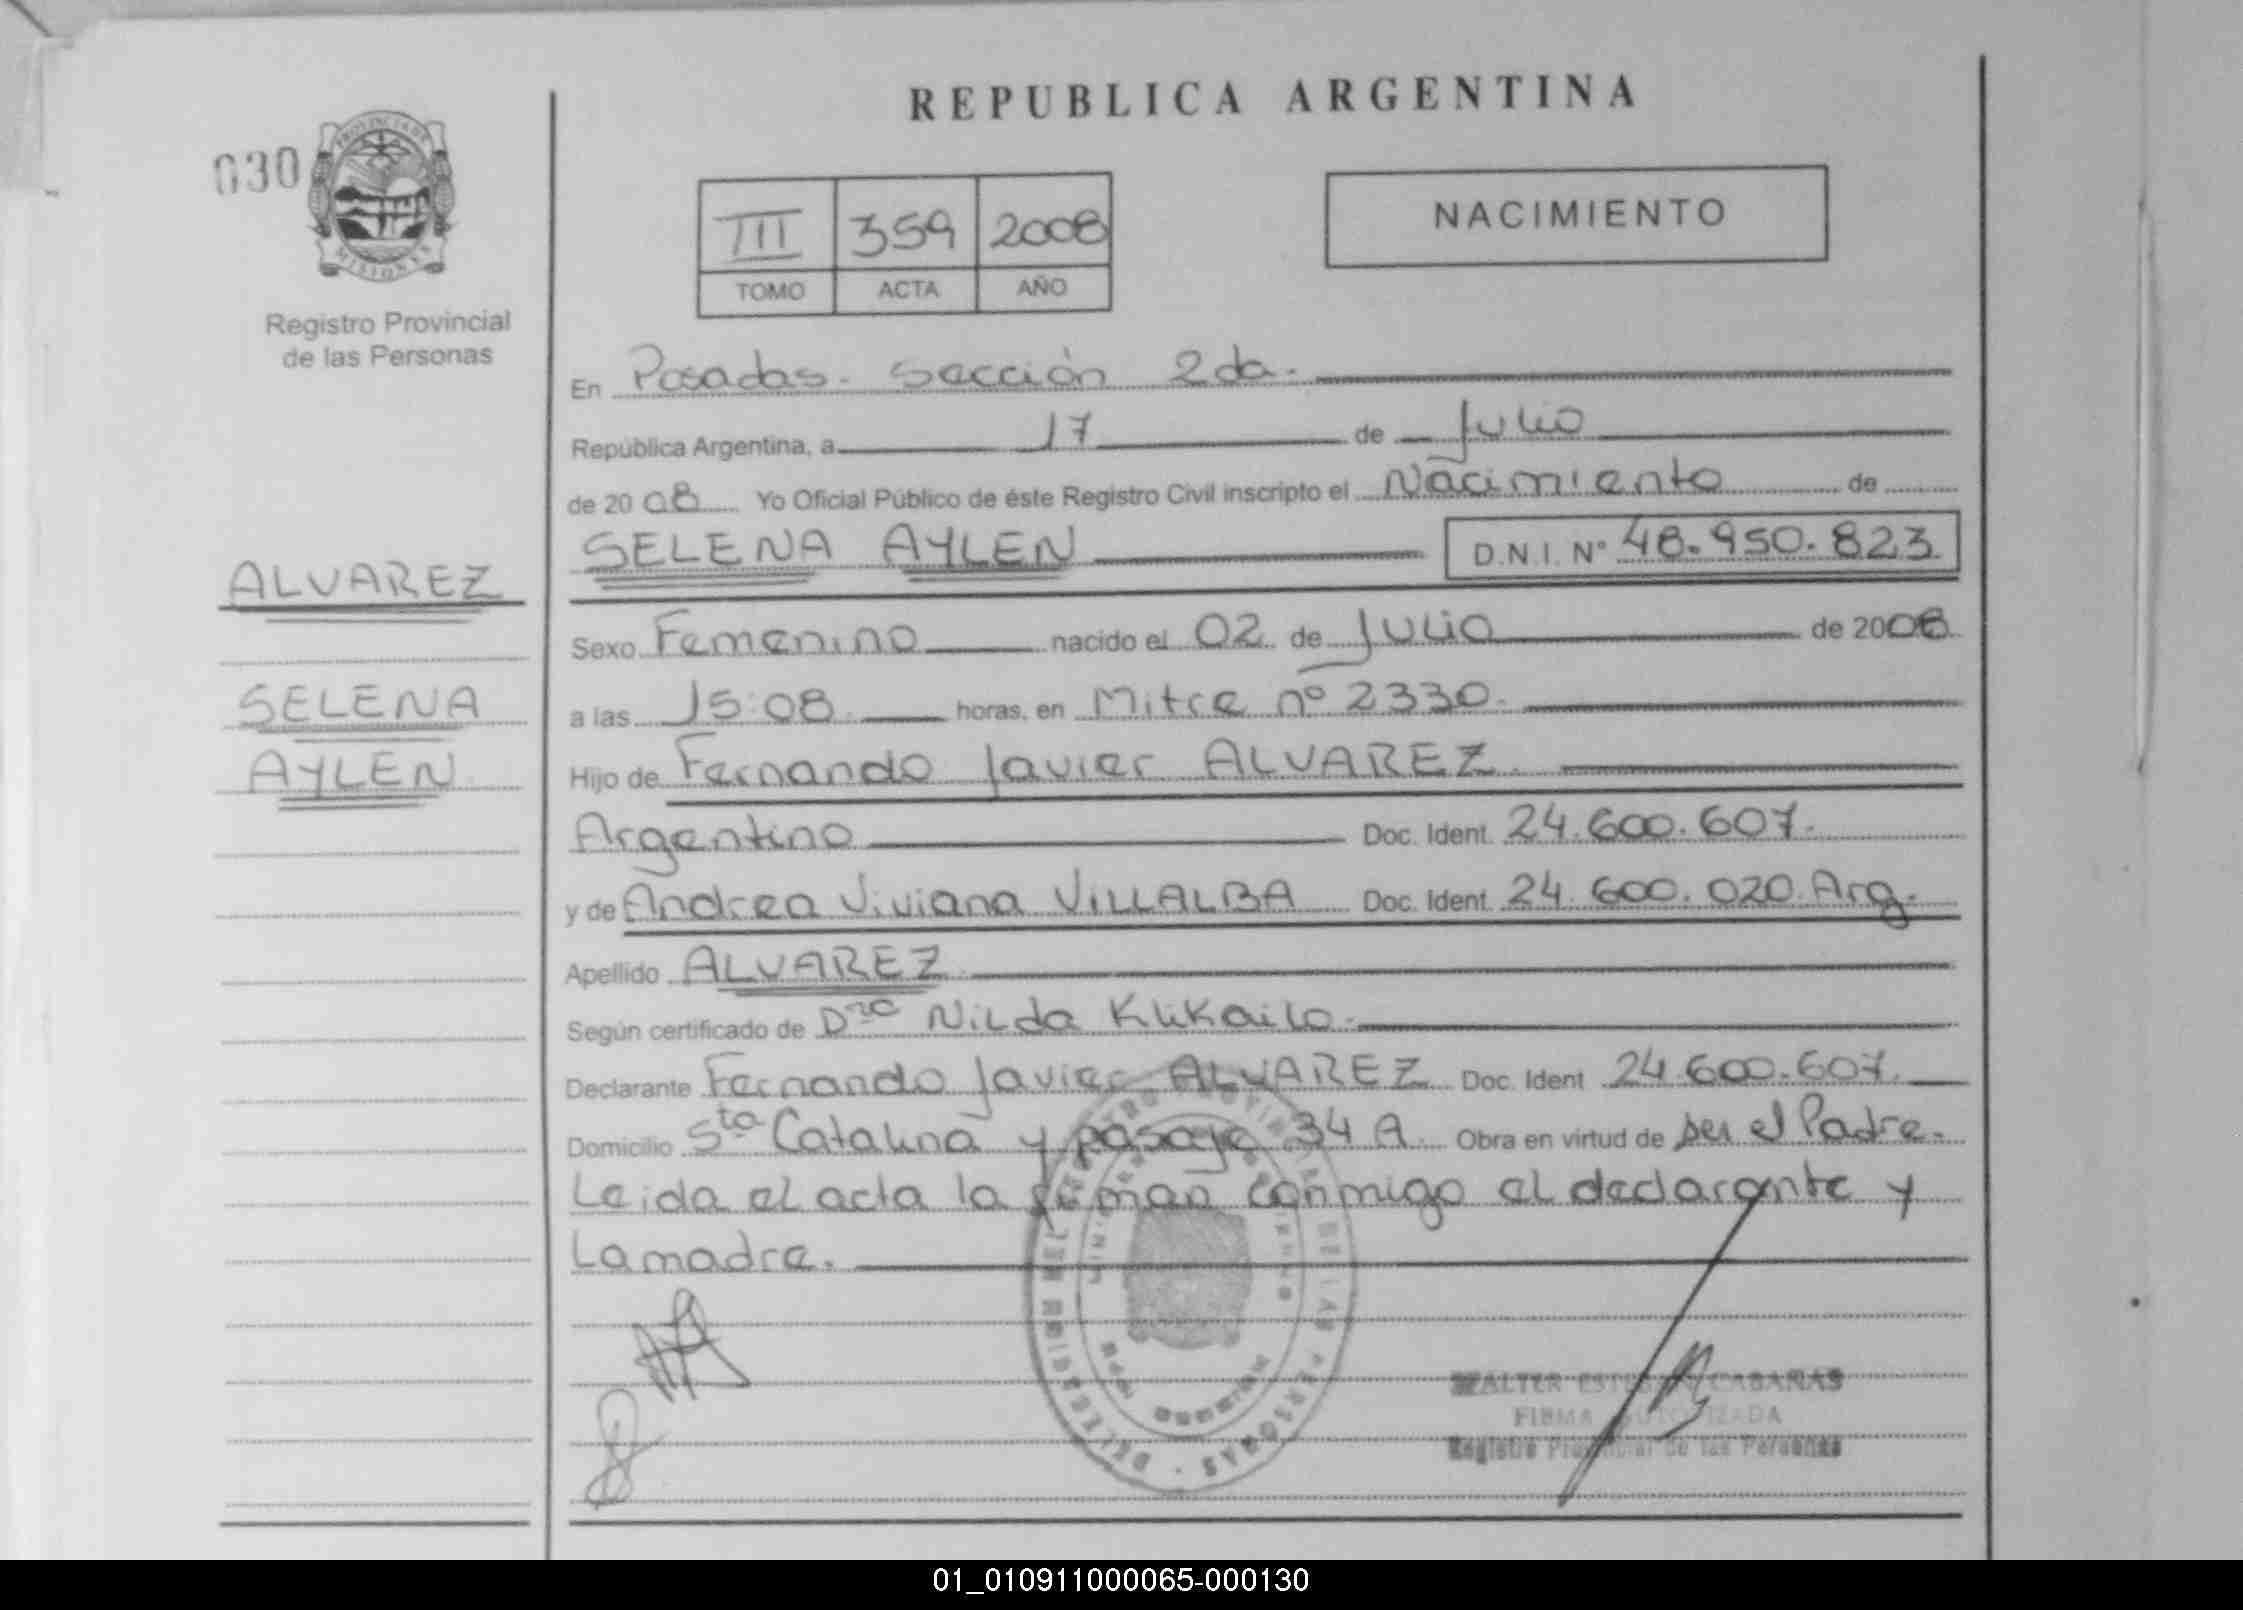 REPUBLICA ARGENTINA
030
PROVINCIA DE
MISIONES
Registro Provincial
de las Personas
III 359 2008
TOMO ACTA AÑO
NACIMIENTO
En Posadas. Sección 2da.
República Argentina, a 17 de Julio
de 20 08 Yo Oficial Público de éste Registro Civil inscripto el Nacimiento de
SELENA AYLEN D.N.I. Nº 48.950.823
ALVAREZ
SELENA
AYLEN
Sexo Femenino nacido el 02 de Julio de 2008
a las 15:08 horas, en Mitre nº 2330.
Hijo de Fernando Javier ALVAREZ.
Argentino Doc. Ident. 24.600.607.
y de Andrea Viviana VILLALBA Doc. Ident. 24.600.020. Arg.
Apellido ALVAREZ
Según certificado de Dra Nilda Klikailo.
Declarante Fernando Javier ALVAREZ Doc. Ident 24.600.607.
Domicilio Sta Catalina y pasaje 34 A. Obra en virtud de ser el Padre.
Leida el acta la firman conmigo el declarante y
La madre.
WALTER ESTEBAN CABAÑAS
FIRMA AUTORIZADA
Registro Provincial de las Personas
01_010911000065-000130